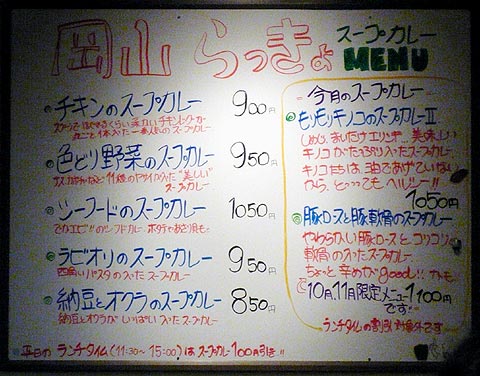 岡山 らっきょ
スープカレー
MENU
チキンのスープカレー 900円
一番人気のスープカレー
色どり野菜のスープカレー 950円
11種のヤサイの入った"美しい"
スープカレー
シーフードのスープカレー 1050円
ラビオリのスープカレー 950円
四角いパスタの入ったスープカレー
納豆とオクラのスープカレー 850円
納豆とオクラがいっぱい入ったスープカレー
平日のランチタイム(11:30~15:00)はスープカレー100円引き!!
今月のスープカレー
モリモリキノコのスープカレーII
しめじ、まいたけ、エリンギ...美味しい
キノコがたっぷり入ったスープカレー
キノコたちは油であげていない
から、と・・・てもヘルシー!!
1050円
豚ロースと豚軟骨のスープカレー
やわらかい豚ロースとコリコリ
軟骨の入ったスープカレー
ちょっと辛めがgood!!かも
10月、11月限定メニュー 1100円
です
ランチタイムの割引対象外です